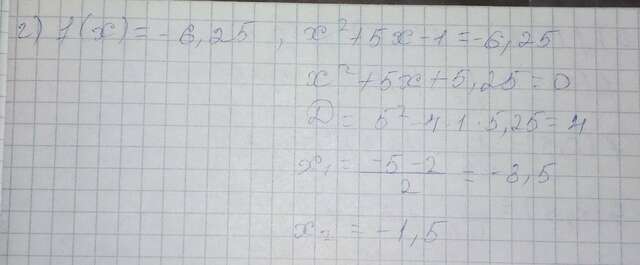 г) f(x) = -6,25 , x² + 5x - 1 = -6,25
x² + 5x + 5,25 = 0
D = 5² - 4 · 1 · 5,25 = 4
x₁ = (-5 - 2)/2 = -3,5
x₂ = -1,5